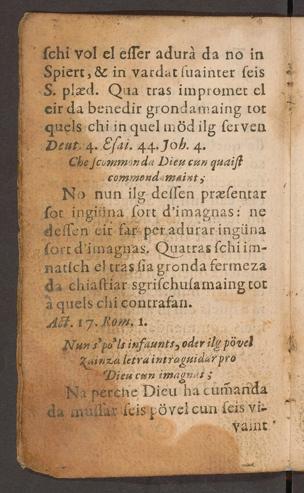 ſchi vol el eſſer adurà da no in
Spiert, & in vardat ſuainter ſeis
S. plæd. Qua tras impromet el
eir da benedir grondamaing tot
quels chi in quel möd ilg ſerven
Deut. 4. Eſai. 44. Joh. 4.
Che ſcommonda Dieu cun quaiſt
commondamaint;
No nun ilg deſſen præſentar
ſot ingiüna ſort d'imagnas: ne
deſſen eir far per adurar ingüna
ſort d'imagnas. Quatras ſchi im-
natſch el tras ſia gronda fermeza
da chiaſtiar sgriſchuſamaing tot
à quels chi contrafan.
Act. 17. Rom. 1.
Nun s'po'ls infaunts, oder ilg pövel
zainza letra intraguidar pro
Dieu cun imagnas;
Na perche Dieu ha cum̃anda
da muſſar ſeis pövel cun ſeis vi-
vaint